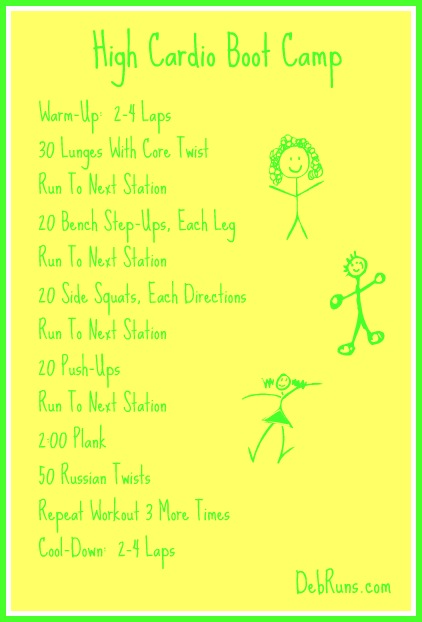 High Cardio Boot Camp
Warm-Up: 2-4 Laps
30 Lunges With Core Twist
Run To Next Station
20 Bench Step-Ups, Each Leg
Run To Next Station
20 Side Squats, Each Directions
Run To Next Station
20 Push-Ups
Run To Next Station
2:00 Plank
50 Russian Twists
Repeat Workout 3 More Times
Cool-Down: 2-4 Laps
DebRuns.com